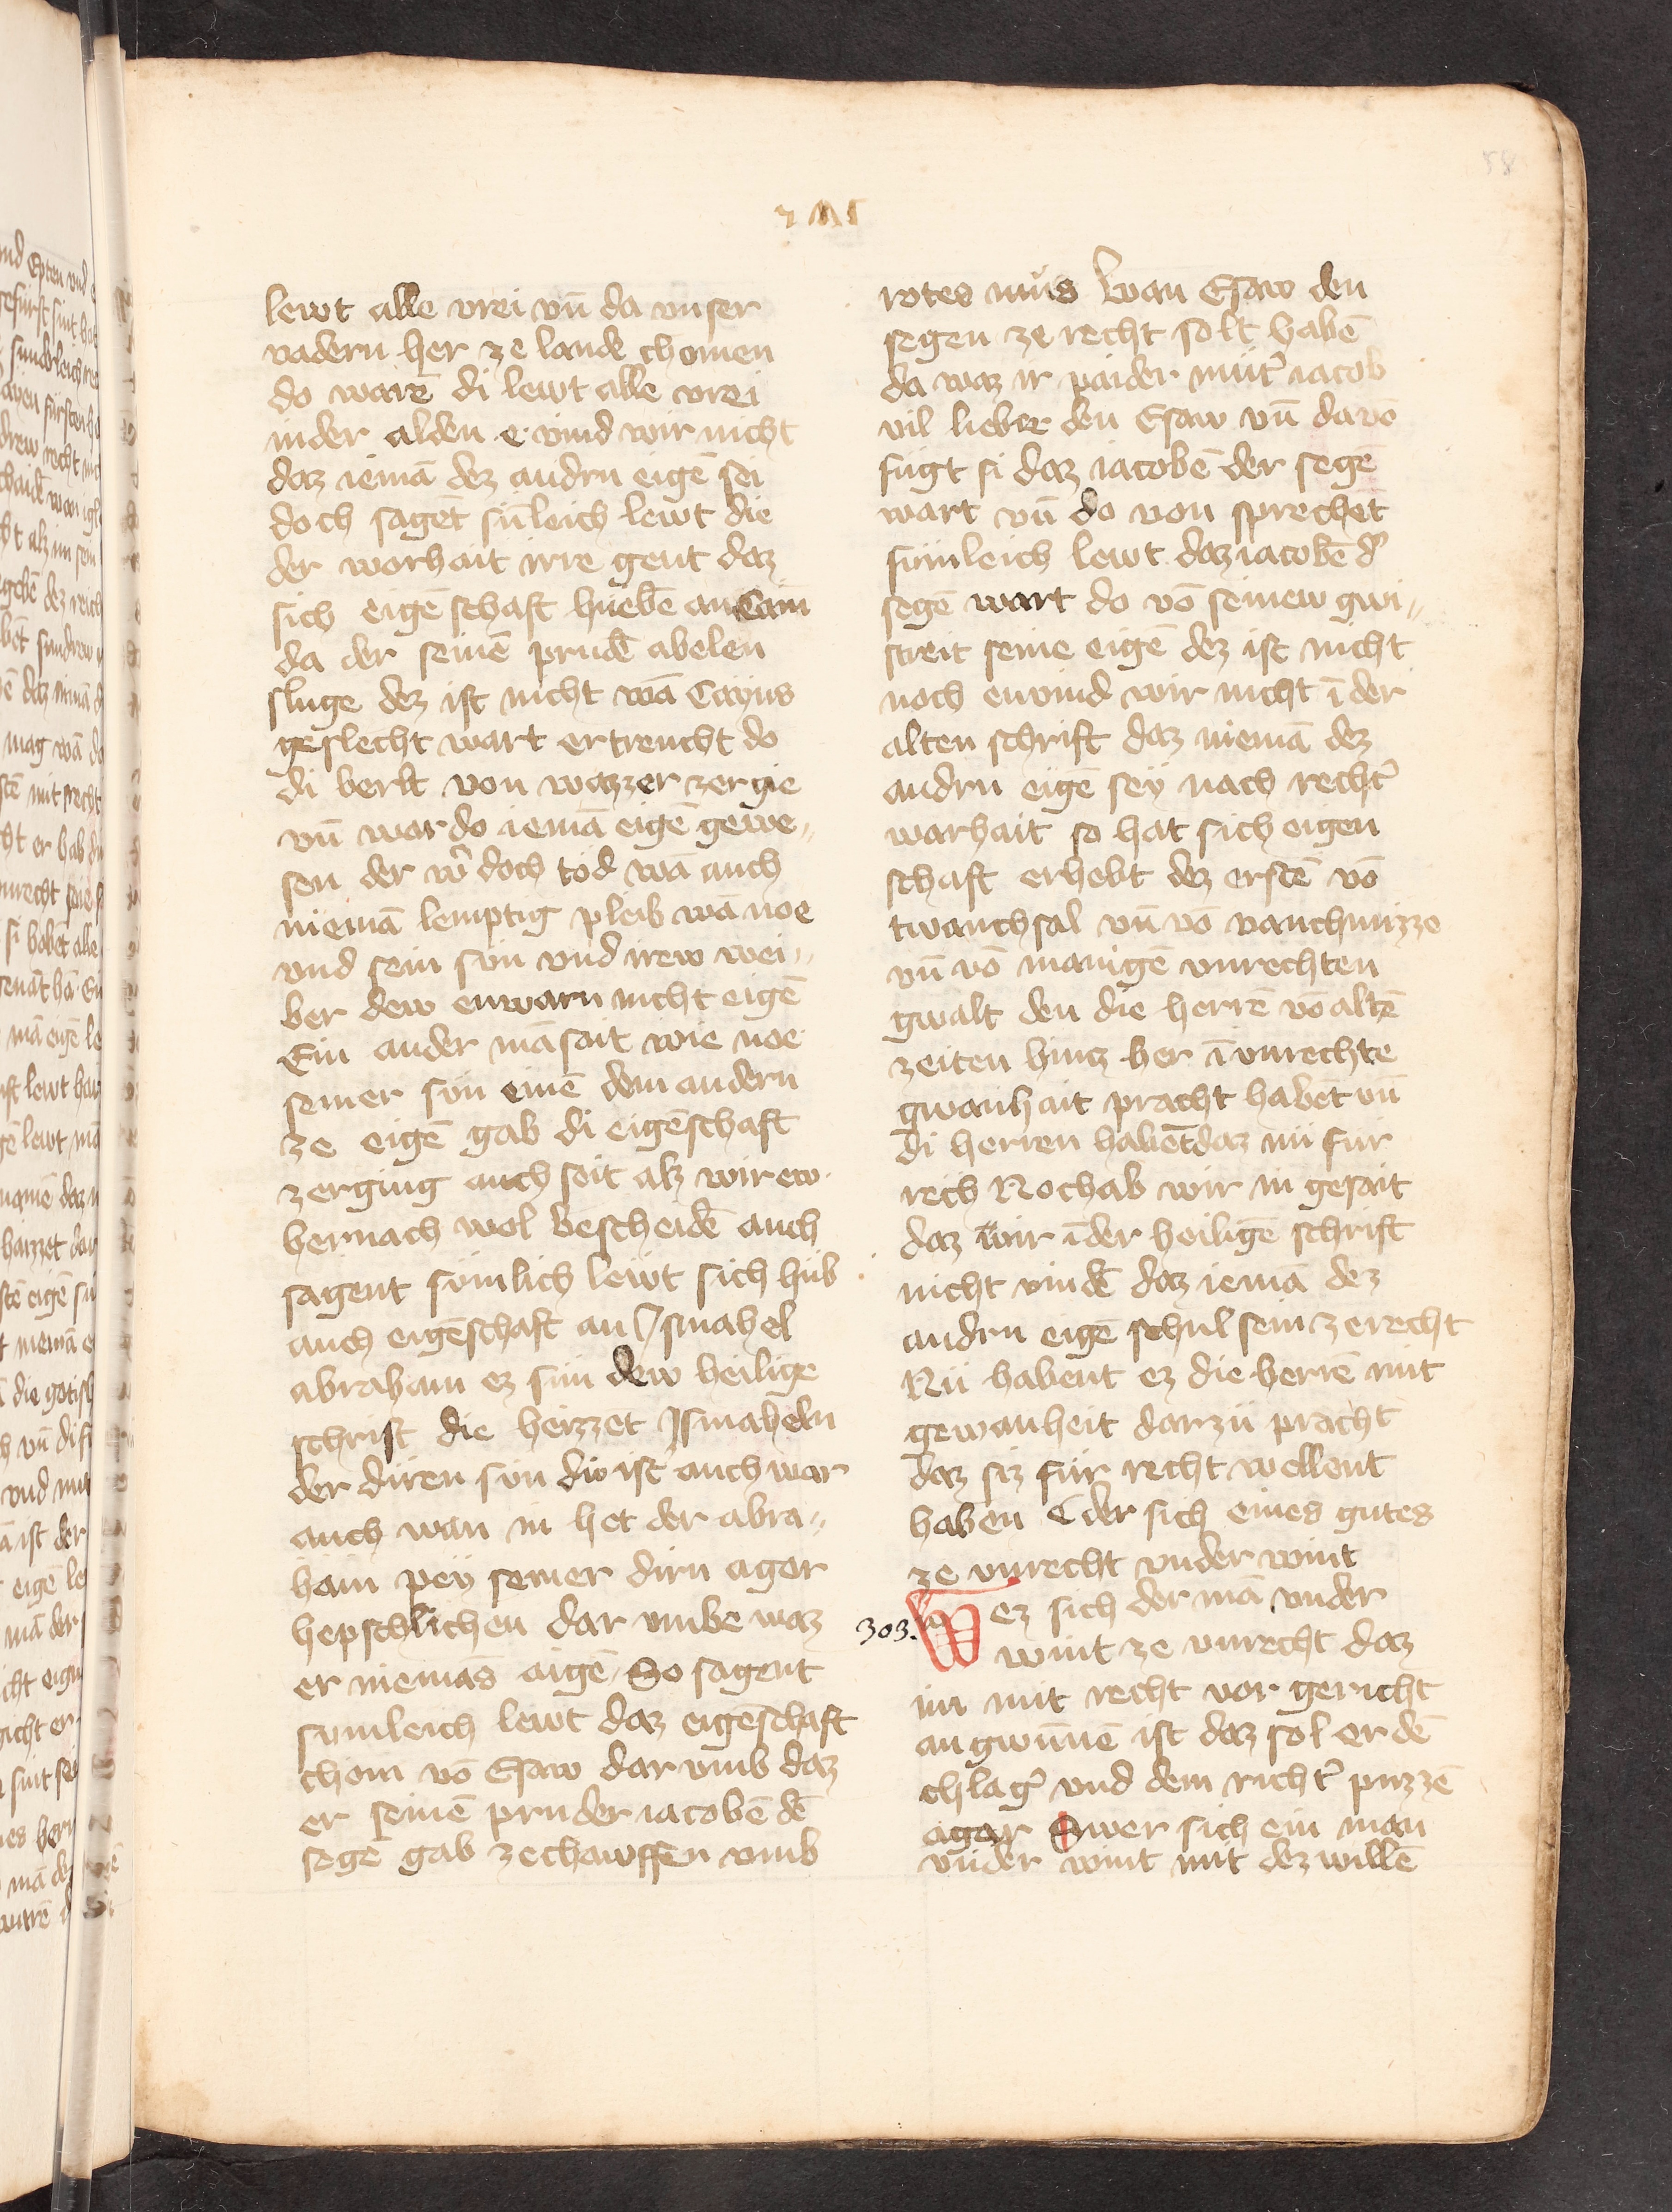 58
lewt alle vrei vn̄ da vnser
vadern her ze lande chomen
do warē di lewt alle vrei
inder alden e vind wir nicht
daz iemā dez andrn eigē sei
doch sagēt sūleich lewt die
der worhait irre gent daz
sich eigē schaft huebē an Cain
da der seinē prudē abelen
sluge dez ist nicht wā Cayns
geslecht wart ertrencht do
di berlt von wazzer zergie
vn̄ war do iemā eigē gewe„
sen der w̄ doch tod wā auch
niemā lemptig pleib wā noe
vnd sein sun vnd irew wei„
ber dew enwarn nicht eigē
Ein ander mā sait wie noe
seiner sun einē dem andern
ze eigē gab di eigēschaft
zerging auch seit alz wir ew
hernach wol bescheidē auch
sagent sumlich lewt sich hub
auch eigēschaft an Ismahel
abraham ez sun dew heilige
schrift die heizzet Ismaheln
der diren sun diw ist auch war
auch wan in het der abra„
ham pey seiner dirn agar
hepschlichen dar vmbe waz
er niemās aigē So sagent
sumleich lewt daz eigēschaft
chom vō Esaw dar vmb daz
er seinē pruder iacobē dē
segē gab zechawffen vmb
rotes mus Wan Esaw den
segen ze recht solt habē
da waz ir paider mut̄ iacob
vil lieber den Esaw vn̄ davō
fugt si daz iacobē der segē
wart vn̄ do von sprechet
sumleich lewt daz iacobē d̄
segē wart do vō seinew gwi„
streit seine eigē dez ist nicht
noch envind wir nicht ī der
alten schrift daz niemā dez
andrn eigē sey nach recht̄
warhait so hat sich eigen
schaft erhebt dez erstē vō
twanchsal vn̄ vō vanchnizze
vn̄ vō manigē vnrechten
gwalt den die herrē vō altē
zeiten hinz her ī vnrechte
gwanhait pracht habēt vn̄
di herren habēt daz nu fur
rech Noch ab wir in gesait
daz wir ī der heiligē schrift
nicht vindē daz iemā dez
andrn eigē schul sein zerecht
Nu habent ez die herrē mit
gewanheit darzu pracht
daz siz fur recht wellent
haben Der sich eines gutes
ze vnrecht vnder wint
303. Wez sich der mā vnder
wint ze vnrecht daz
im mit recht vor gericht
angwunnē ist daz sol er dē
chlaḡ vnd dem richt̄ puzzē
agar Swer sich ein man
vnder wint mit dez willē